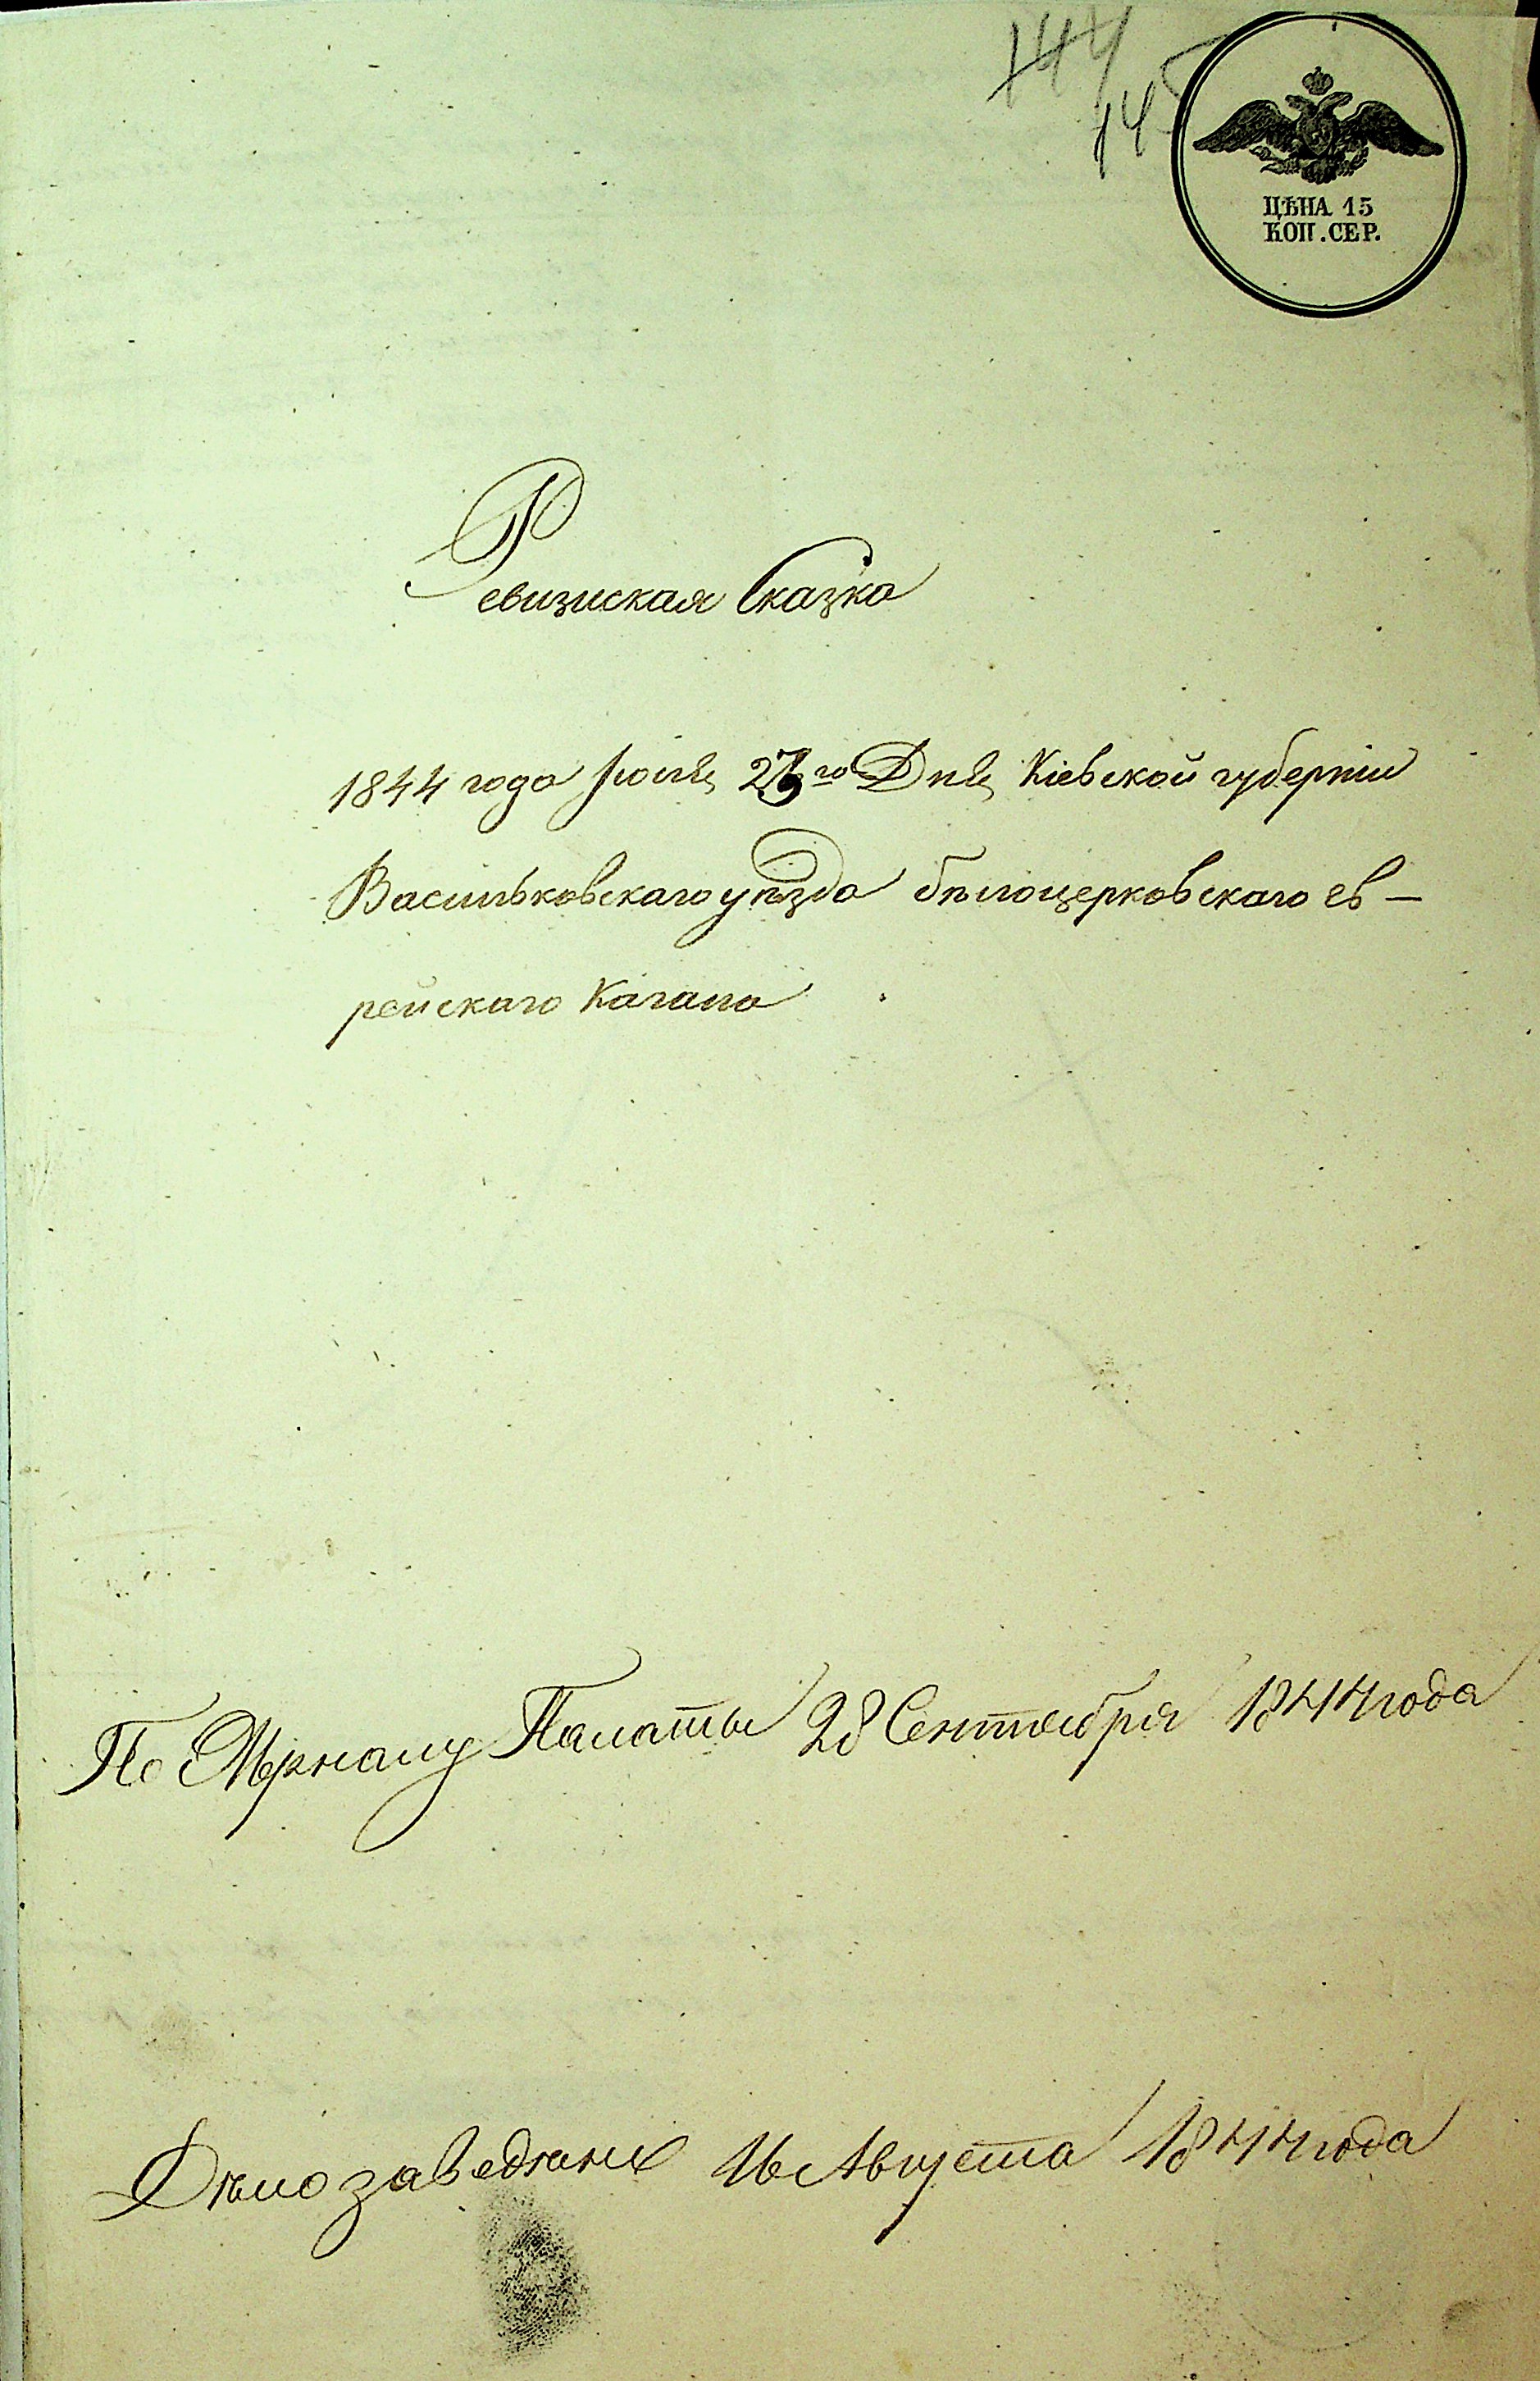 144
145
ЦѢНА 15
КОП. СЕР.
Ревизиская Сказка
1844 года Іюля го Дня Кіевской губерніи
Васильковскаго уѣзда бѣлоцерковскаго ев-
рейскаго Кагала
По Журналу Палаты 28 Сентября 1844 года
Дѣло заведенне 16 Августа 1844 года